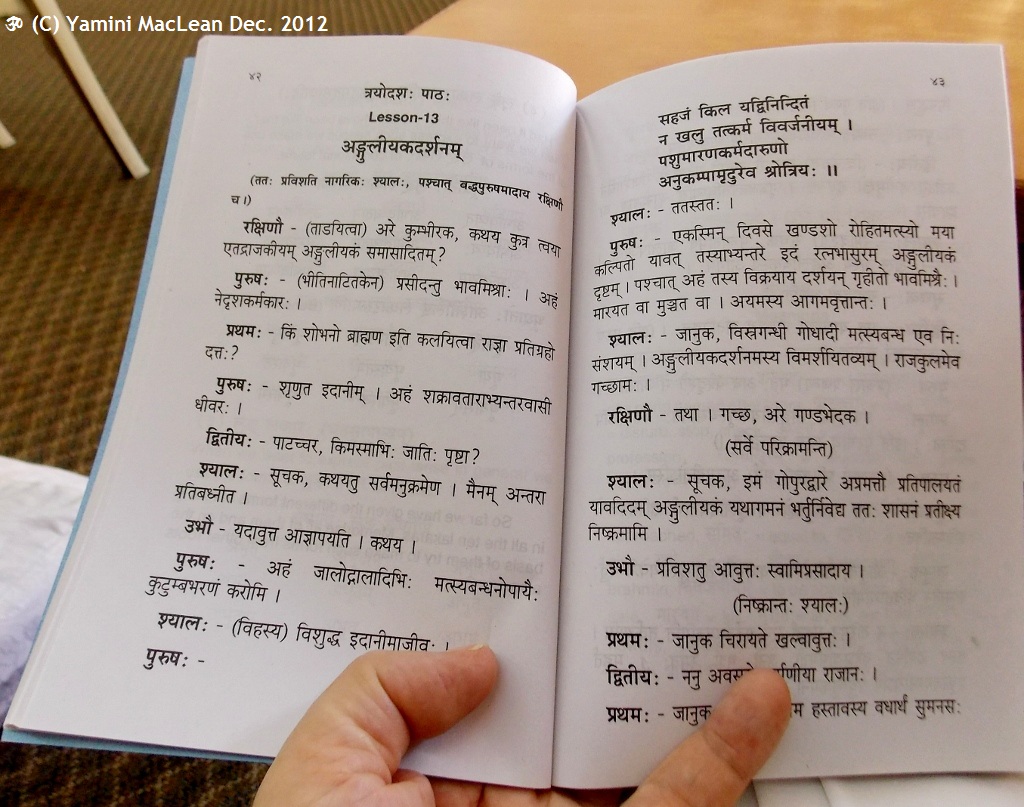 ॐ (C) Yamini MacLean Dec. 2012
४२
त्रयोदशः पाठः
Lesson-13
अङ्गुलीयकदर्शनम्
(ततः प्रविशति नागरिकः श्यालः, पश्चात् बद्धपुरुषमादाय रक्षिणौ
च।)
रक्षिणौ - (ताडयित्वा) अरे कुम्भीरक, कथय कुत्र त्वया
एतद्राजकीयम् अङ्गुलीयकं समासादितम्?
पुरुषः - (भीतिनाटितकेन) प्रसीदन्तु भावमिश्राः । अहं
नेदृशकर्मकारः ।
प्रथमः - किं शोभनो ब्राह्मण इति कलयित्वा राज्ञा प्रतिग्रहो
दत्तः?
पुरुषः - शृणुत इदानीम् । अहं शक्रावताराभ्यन्तरवासी
धीवरः ।
द्वितीयः - पाटच्चर, किमस्माभिः जातिः पृष्टा?
श्यालः - सूचक, कथयतु सर्वमनुक्रमेण । मैनम् अन्तरा
प्रतिबध्नीत ।
उभौ - यदावुत्त आज्ञापयति । कथय ।
पुरुषः - अहं जालोद्गालादिभिः मत्स्यबन्धनोपायैः
कुटुम्बभरणं करोमि ।
श्यालः - (विहस्य) विशुद्ध इदानीमाजीवः ।
पुरुषः -
४३
सहजं किल यद्विनिन्दितं
न खलु तत्कर्म विवर्जनीयम् ।
पशुमारणकर्मदारुणो
अनुकम्पामृदुरेव श्रोत्रियः ॥
श्यालः - ततस्ततः ।
पुरुषः - एकस्मिन् दिवसे खण्डशो रोहितमत्स्यो मया
कल्पितो यावत् तस्याभ्यन्तरे इदं रत्नभासुरम् अङ्गुलीयकं
दृष्टम् । पश्चात् अहं तस्य विक्रयाय दर्शयन् गृहीतो भावमिश्रैः ।
मारयत वा मुञ्चत वा । अयमस्य आगमवृत्तान्तः ।
श्यालः - जानुक, विस्रगन्धी गोधादी मत्स्यबन्ध एव निः
संशयम् । अङ्गुलीयकदर्शनमस्य विमर्शयितव्यम् । राजकुलमेव
गच्छामः ।
रक्षिणौ - तथा । गच्छ, अरे गण्डभेदक ।
(सर्वे परिक्रामन्ति)
श्यालः - सूचक, इमं गोपुरद्वारे अप्रमत्तौ प्रतिपालयतं
यावदिदम् अङ्गुलीयकं यथागमनं भर्तुर्निवेद्य ततः शासनं प्रतीक्ष्य
निष्क्रमामि ।
उभौ - प्रविशतु आवुत्तः स्वामिप्रसादाय ।
(निष्क्रान्तः श्यालः)
प्रथमः - जानुक चिरायते खल्वावुत्तः ।
द्वितीयः - ननु राजानः ।
प्रथमः - जानुक हस्तावस्य वधार्थं सुमनसः